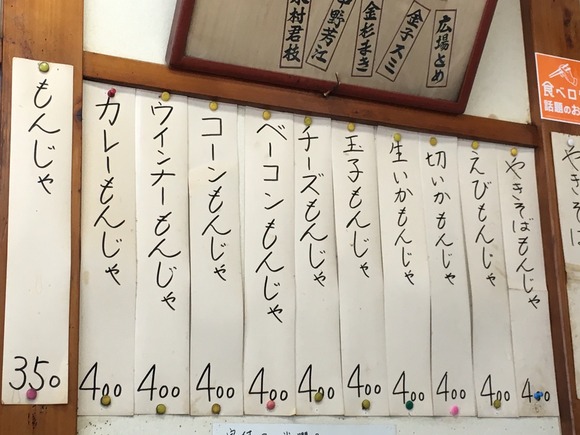 広場とめ
金子スミ
金杉まき
中野芳江
木村君枝
食べロ
話題のお
やきそば
やきそばもんじゃ 400
えびもんじゃ 400
切いかもんじゃ 400
生いかもんじゃ 400
玉子もんじゃ 400
チーズもんじゃ 400
ベーコンもんじゃ 400
コーンもんじゃ 400
ウインナーもんじゃ 400
カレーもんじゃ 400
もんじゃ 350